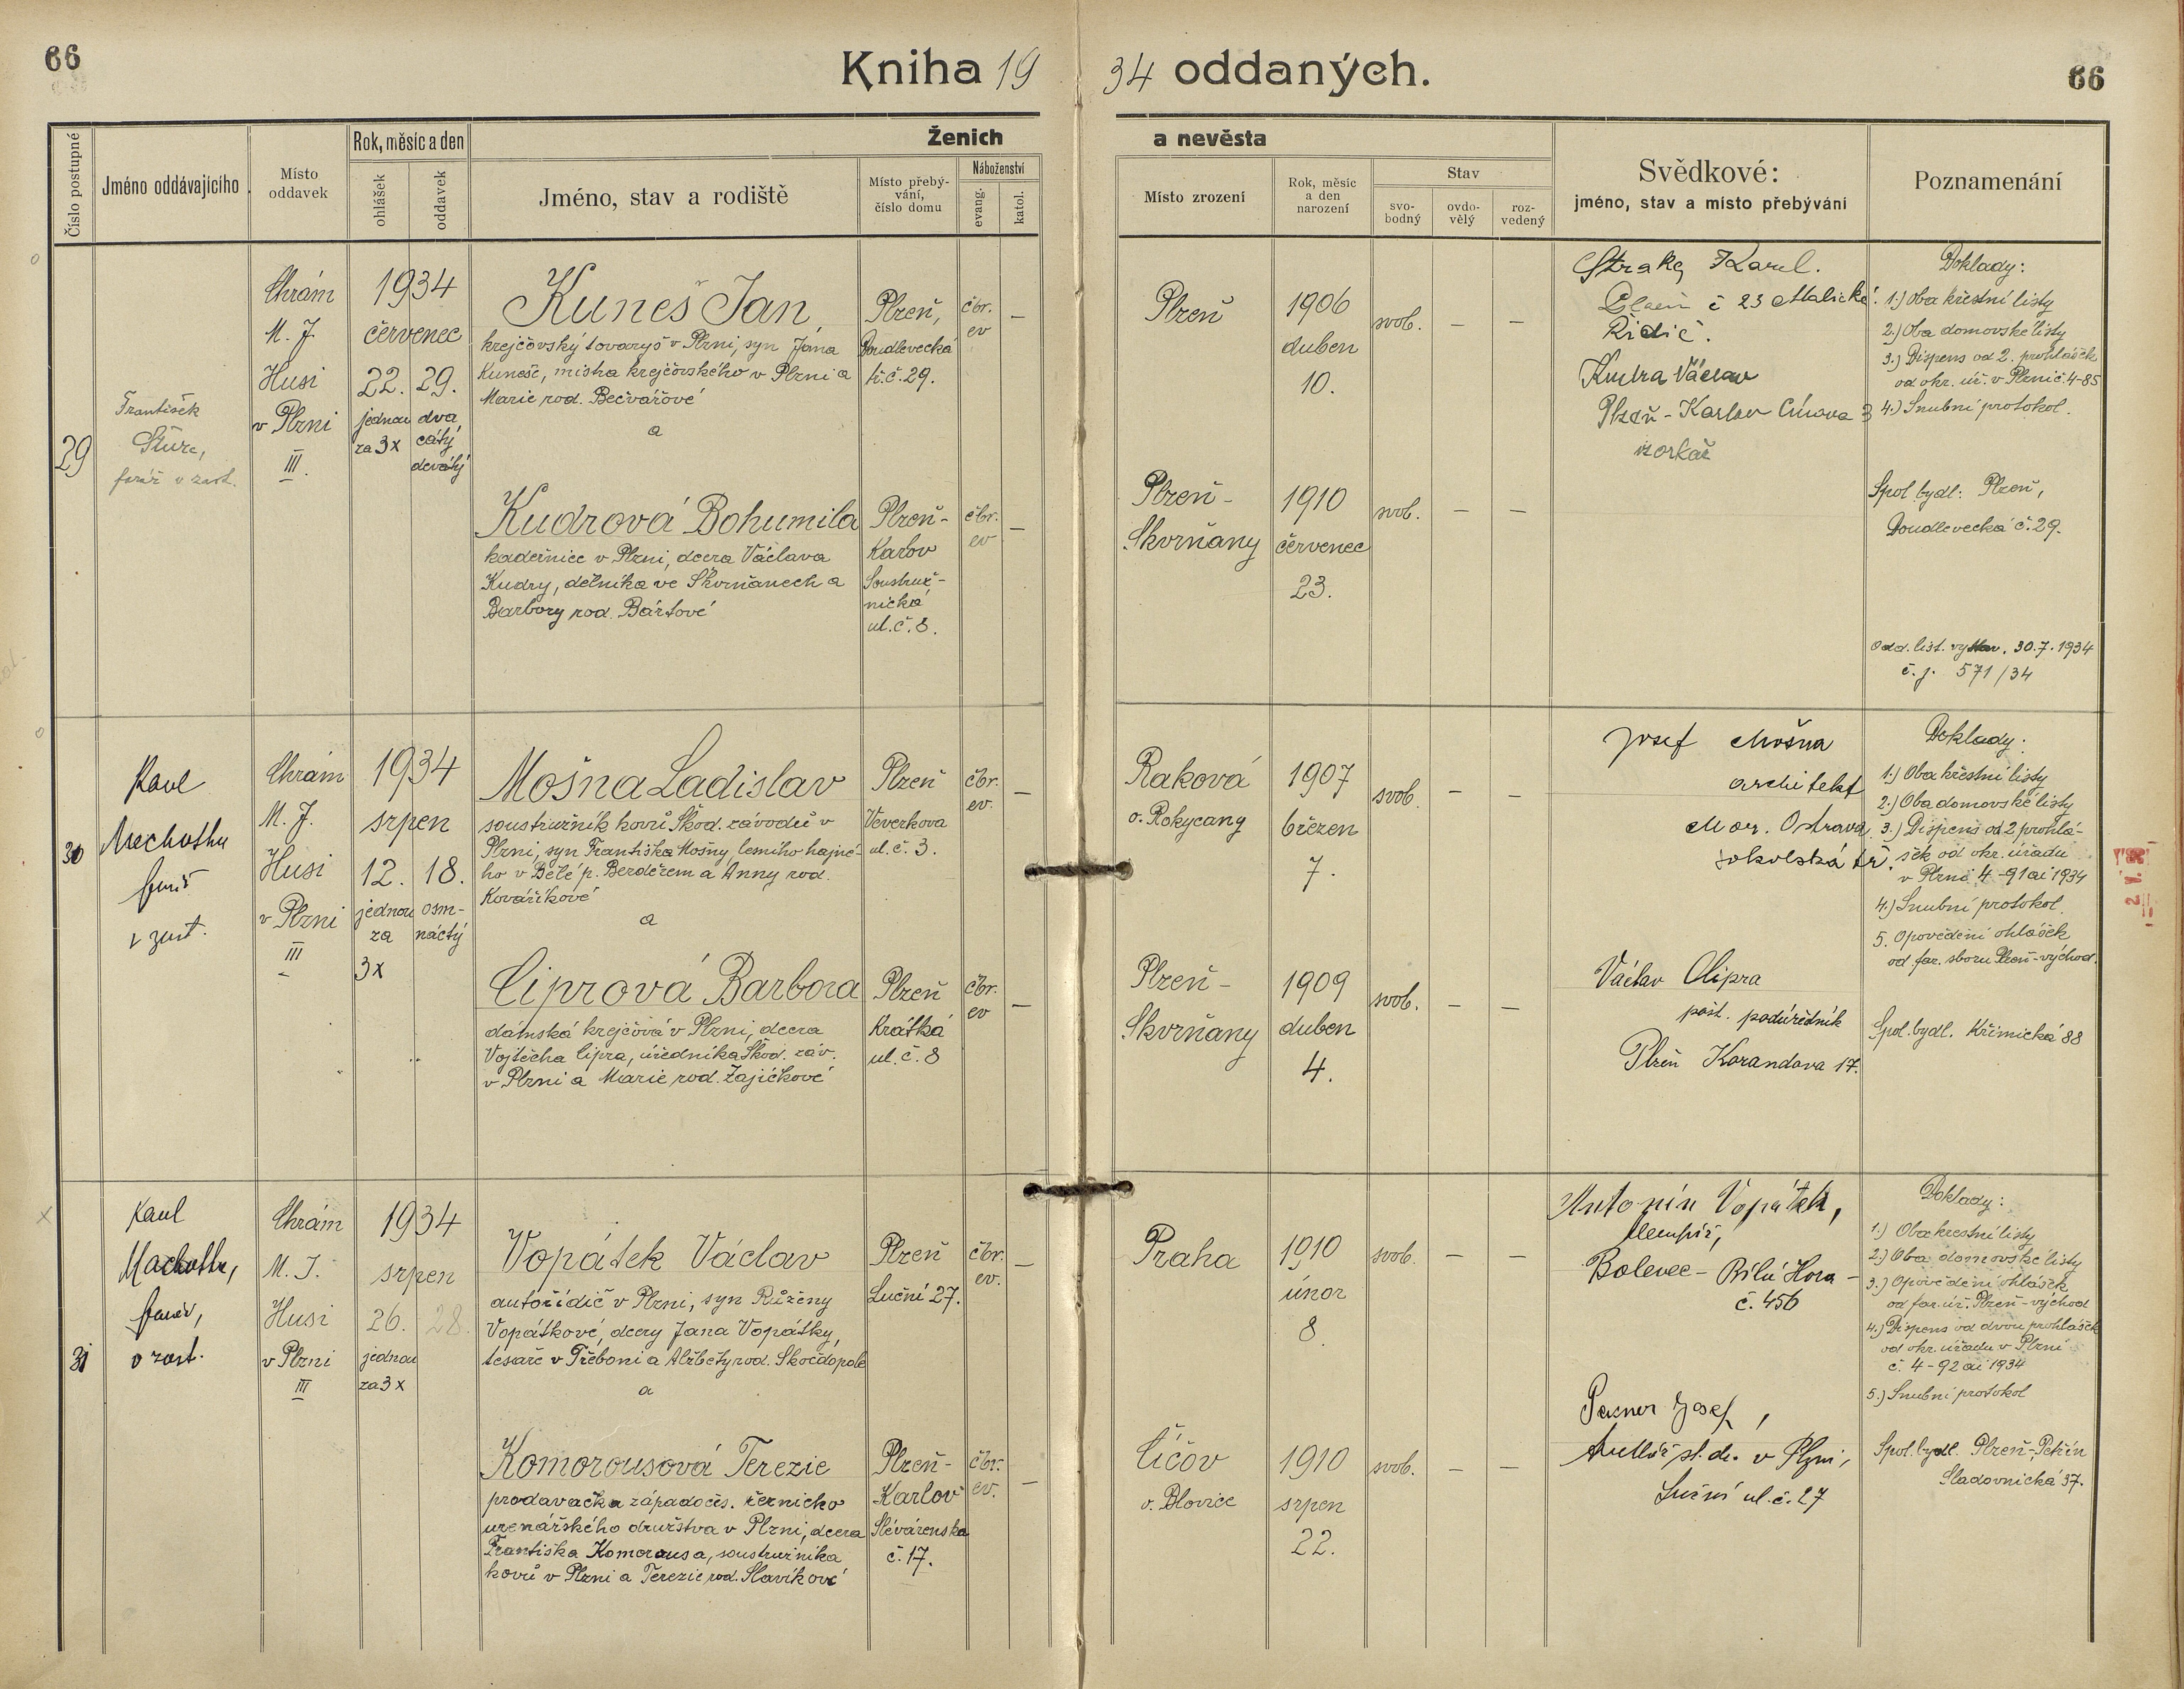 66
Kniha 1934 oddaných.
66
Číslo postupné
Jméno oddávajícího
Místo oddavek
Rok, měsíc a den
ohlášek
oddavek
Ženich a nevěsta
Jméno, stav a rodiště
Místo přebývání, číslo domu
Náboženství
evang.
katol.
Místo zrození
Rok, měsíc a den narození
Stav
svobodný
ovdovělý
rozvedený
Svědkové:
jméno, stav a místo přebývání
Poznamenání
29
František
Šturc,
farář v zast.
Chrám
M. J.
Husi
v Plzni
III.
1934
červenec
22. 29.
jednou
za 3x
dva
cátý
devátý
Kuneš Jan,
krejčovský tovaryš v Plzni, syn Jana
Kuneše, mistra krejčovského v Plzni a
Marie rod. Bečvářové
a
Plzeň,
Doudlevecká
tř. č. 29.
čbr.
ev
—
Plzeň
1906
duben
10.
svob. — —
Kudrová Bohumila
kadeřnice v Plzni, dcera Václava
Kudry, dělníka ve Skvrňanech a
Barbory rod. Bártové
Plzeň-
Karlov
Soustruž-
nická
ul. č. 8.
čbr.
ev
—
Plzeň-
Skvrňany
1910
červenec
23.
svob. — —
Straka Karel.
Plzeň č 23 Malická.
Řidič.
Kudra Václav
Plzeň - Karlov
Doklady:
1.) Oba křestní listy
2.) Oba domovské listy
3.) Dispens od 2. prohlášek
od okr. úř. v Plzni č. 4-85
4.) Snubní protokol.
Spol. bydl: Plzeň,
Doudlevecká č. 29.
Odd. list. vystav. 30.7.1934
č. j. 571/34
30
Pavel
v zast.
Chrám
M. J.
Husi
v Plzni
III
1934
srpen
12. 18.
jednou
za
3x
osm-
náctý
Mošna Ladislav
soustružník kovů Škod. závodů v
Plzni, syn Františka Mošny lesního hajné-
ho v Bělé p. Berděřem a Anny rod.
Kováříkové
a
Plzeň
Veverkova
ul. č. 3.
čbr.
ev.
—
Raková
o. Rokycany
1907
březen
7.
svob. — —
Ciprová Barbora
dámská krejčová v Plzni, dcera
Vojtěcha Cipra, úředníka Škod. záv.
v Plzni a Marie rod. Zajíčkové
Plzeň
Krátká
ul. č. 8
čbr.
ev
—
Plzeň-
Skvrňany
1909
duben
4.
svob. — —
Josef Mošna
architekt
Mor. Ostrava
sokolská tř.
Václav Cipra
pošt. podúředník
Plzeň Korandova 17.
Doklady:
1.) Oba křestní listy
2.) Oba domovské listy
3.) Dispens od 2 prohlá-
šek od okr. úřadu
v Plzni 4-91 ai 1934
4.) Snubní protokol.
5. Opovědění ohlášek
od far. sboru Plzeň-východ.
Spol. bydl. Křimická 88
31
Machotka,
farář,
v zast.
Chrám
M. J.
Husi
v Plzni
III
1934
srpen
26. 28.
jednou
za 3x
Vopátek Václav
autořidič v Plzni, syn Růženy
Vopátkové, dcery Jana Vopátky,
tesaře v Třeboni a Alžběty rod. Skočdopole
a
Plzeň
Luční 27.
čbr.
ev.
—
Praha
1910
únor
8.
svob. — —
Komorousová Terezie
prodavačka západočes. řeznicko
uzenářského družstva v Plzni, dcera
Františka Komorousa, soustružníka
kovů v Plzni a Terezie rod. Slavíkové
Plzeň-
Karlov
Slévárenská
č. 17.
čbr.
ev.
—
Číčov
o. Blovice
1910
srpen
22.
svob. — —
Antonín Vopátek,
klempíř,
Bolevec - Bílá Hora -
č. 456
Josef,
v Plzni,
Luční ul. č. 27
Doklady:
1.) Oba křestní listy
2.) Oba domovské listy
3.) Opovědění ohlášek
od far. úř. Plzeň-východ
4.) Dispens od dvou prohlášek
od okr. úřadu v Plzni
č. 4-92 ai 1934
5.) Snubní protokol
Spol. bydl. Plzeň-Petřín
Sladovnická 37.